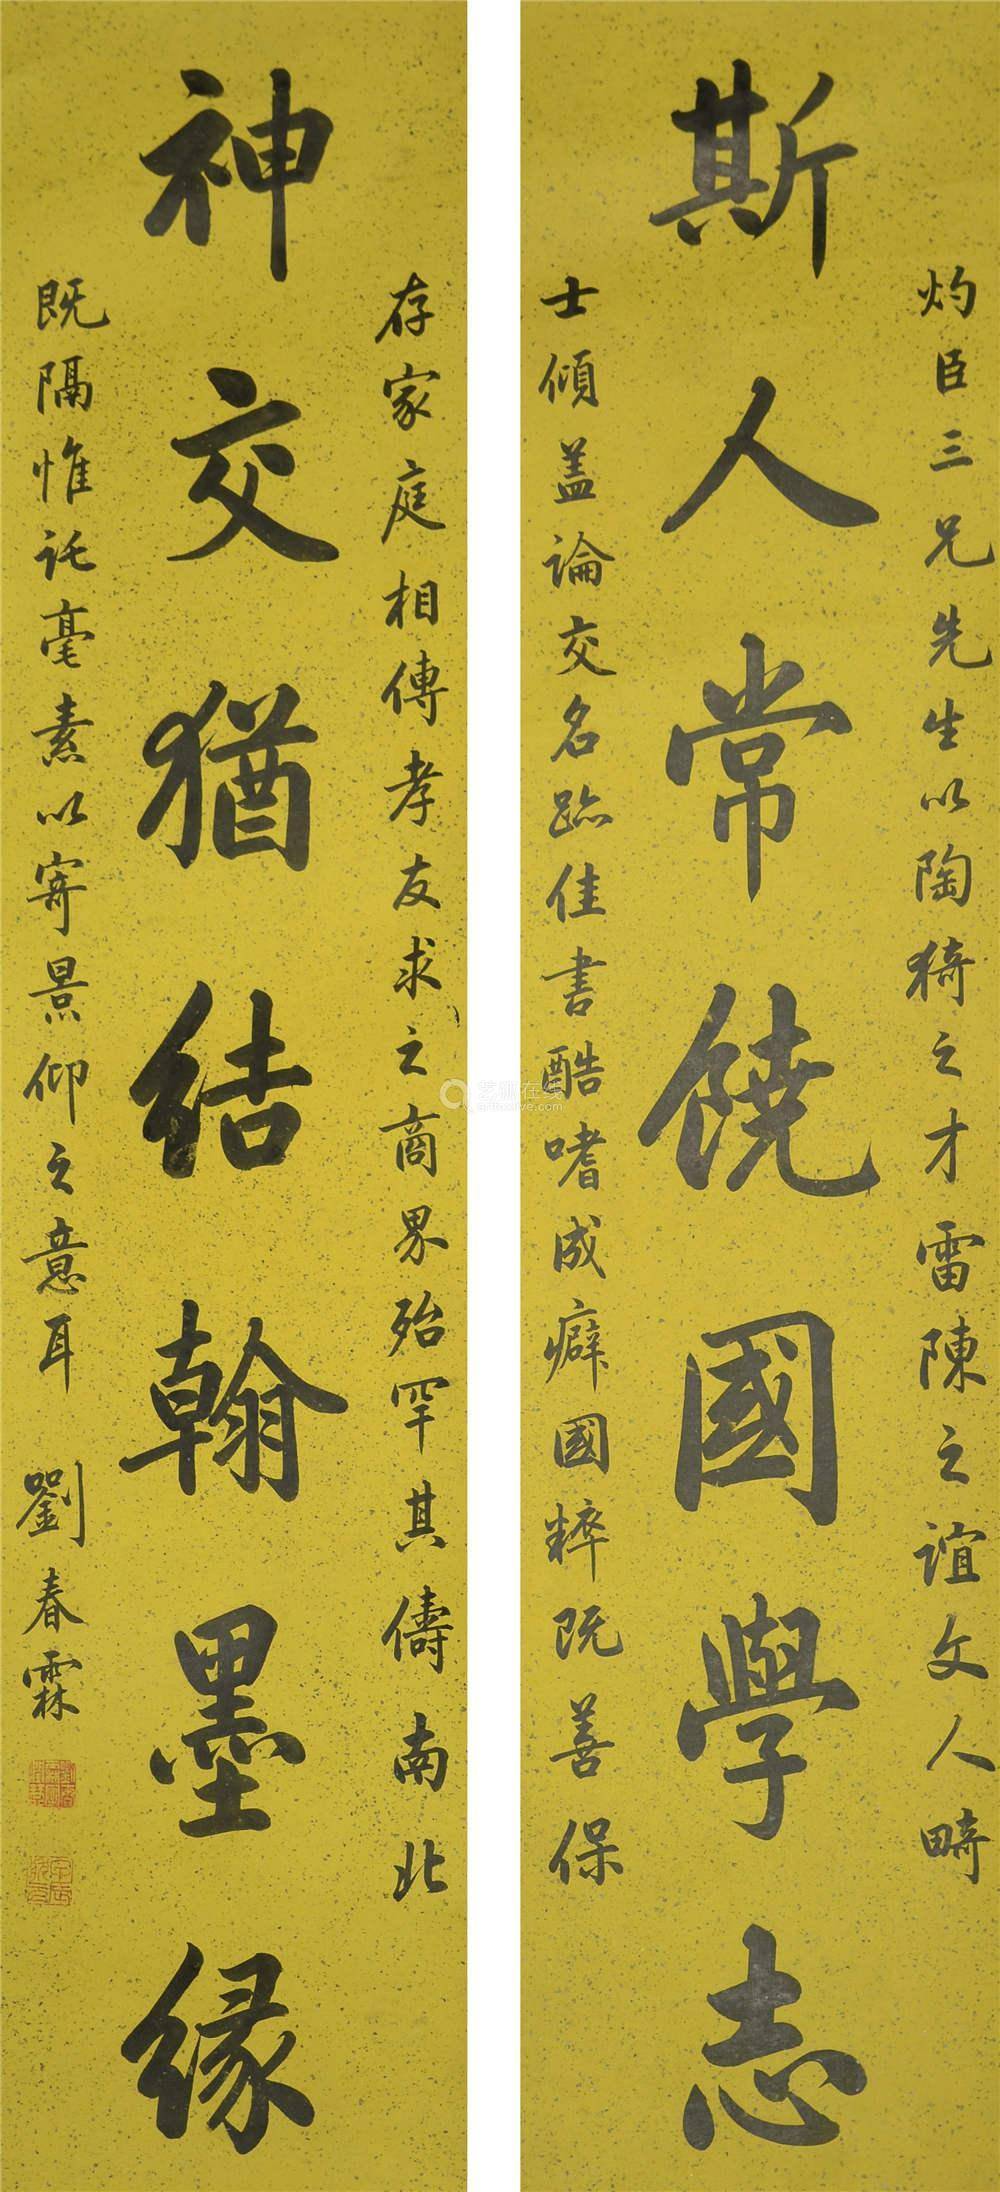 斯人常饒國學志
灼臣三兄先生以陶猗之才雷陳之誼文人畸
士傾蓋論交名跡佳書酷嗜成癖國粹既善保
神交猶結翰墨緣
存家庭相傳孝友求之商界殆罕其儔南北
既隔惟託毫素以寄景仰之意耳 劉春霖
艺狐在线
artfoxlive.com